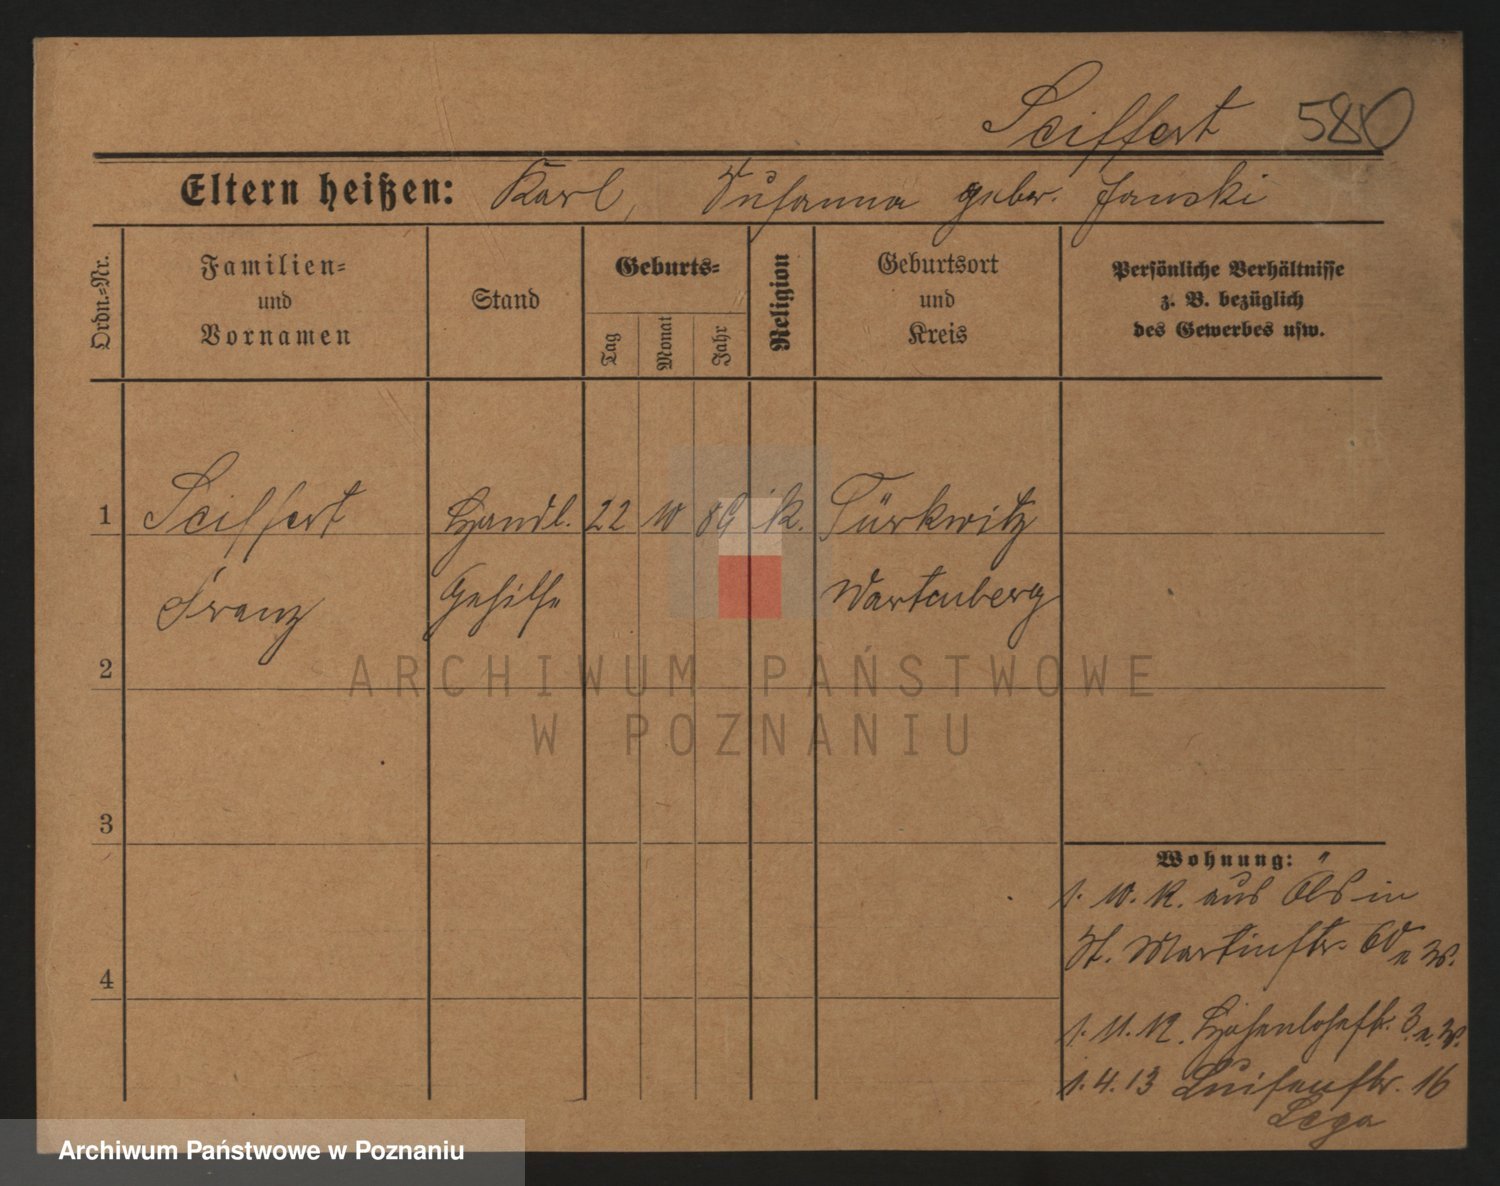 Seiffert 580
Eltern heißen: Karl, Susanna gebor. Janski
Ordn.-Nr.
Familien-
und
Vornamen
Stand
Geburts-
Tag
Monat
Jahr
Religion
Geburtsort
und
Kreis
Persönliche Verhältnisse
z. B. bezüglich
des Gewerbes usw.
1 Seiffert Handl. 22 10 89 k. Türkwitz
Franz Gehilfe Wartenberg
2
3
4
Wohnung:
1. 10. 12. aus Öls in
St. Martinstr. 60
1. 11. 12. Hohenlohestr. 3
1. 4. 13 Luisenstr. 16
Lega
ARCHIWUM PAŃSTWOWE
W POZNANIU
Archiwum Państwowe w Poznaniu